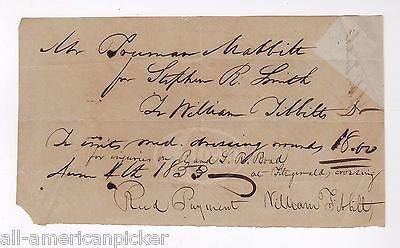 Mr Truman Mabbitt
for Stephen R. Smith
To William Tibbitts Dr
To visits med. dressing wounds 18.00
for injuries on G. R. Road
June 4th 1853 at Fitzgerald crossing
Recd Payment William Tibbitts
© all-americanpicker